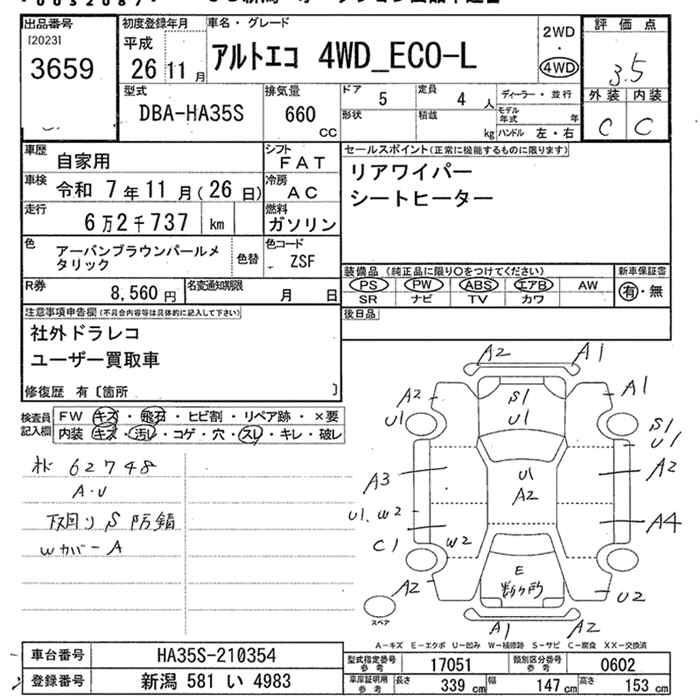 出品番号
[2023]
3659
初度登録年月
平成
26 11 月
車名・グレード
アルトエコ 4WD_ECO-L
2WD
・
4WD
評価点
3.5
外装 内装
C C
型式
DBA-HA35S
排気量
660
CC
ドア
5
定員
4 人
形状
積載
kg
ディーラー・並行
モデル年式
年
ハンドル 左・右
車歴
自家用
シフト
FAT
車検
令和 7 年 11 月 ( 26 日)
冷房
AC
走行
6万2千737 km
燃料
ガソリン
色
アーバンブラウンパールメ
タリック
色替
色コード
ZSF
R券
8,560 円
名変通知期限
月 日
セールスポイント(正常に機能するものに限ります)
リアワイパー
シートヒーター
装備品 (純正品に限り○をつけてください)
新車保証書
PS PW ABS エアB AW
SR ナビ TV カワ
有・無
後日品
注意事項申告欄(不具合内容等は具体的に記入して下さい)
社外ドラレコ
ユーザー買取車
修復歴 有〔箇所 〕
検査員
記入欄
FW キズ・飛石・ヒビ割・リペア跡・×要
内装 キズ・汚レ・コゲ・穴・スレ・キレ・破レ
62748
A・U
下回り S 防錆
Wカバー A
A2 A1
A2 S1 A1
U1 U1 S1
U1
A3 U1 A2
A2
U1. W2 A4
C1 W2
E
A2 U2
A1 A2
スペア
A-キズ E-エクボ U-凹み W-補修跡 S-サビ C-腐食 XX-交換済
車台番号
HA35S-210354
登録番号
新潟 581 い 4983
型式指定番号
参考
17051
類別区分番号
参考
0602
車庫証明用
参考
長さ
339 cm
幅
147 cm
高さ
153 cm